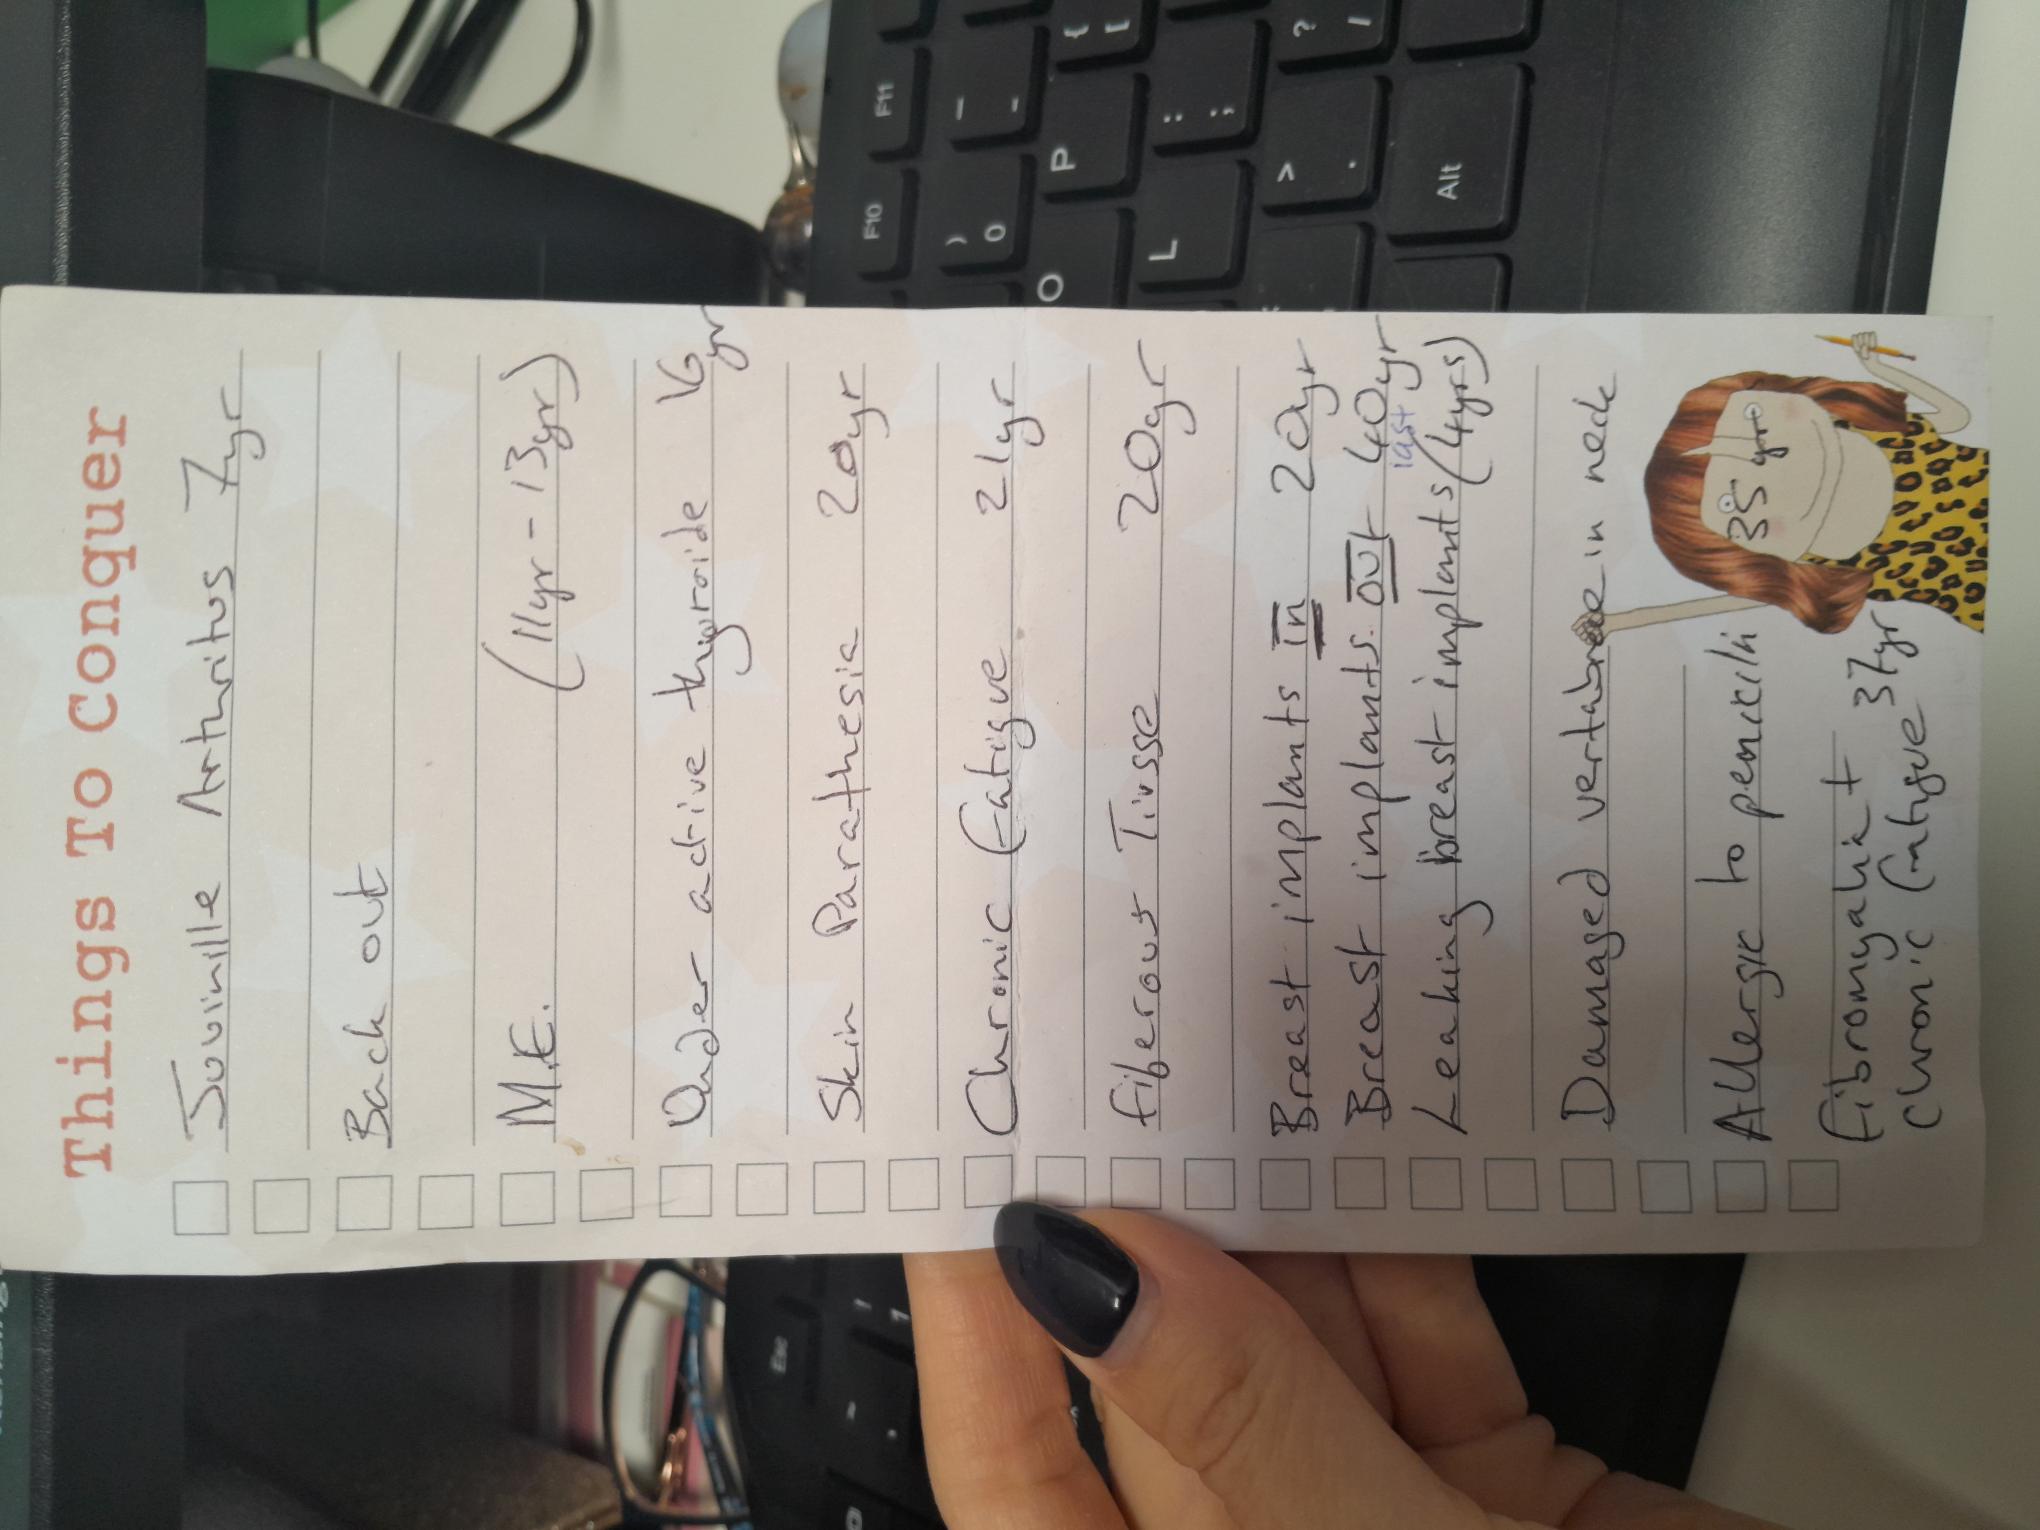 Things To Conquer
Juvinille Arthritus 7yr
Back out
M.E. (11yr - 13yr)
Under active thyroride 16yr
Skin Parathesia 20yr
Chronic Fatigue 21yr
Fiberous Tissse 20yr
Breast implants in 20yr
Breast implants out 40yr
last
Leaking breast implants (4yrs)
Damaged vertabrae in neck
35 yr
Allergic to penicilin
Fibromyalia +
Chronic Fatigue 37yr
F10
F11
)
0
_
-
O
P
{
[
L
:
;
>
.
?
/
Alt
Esc
!
1